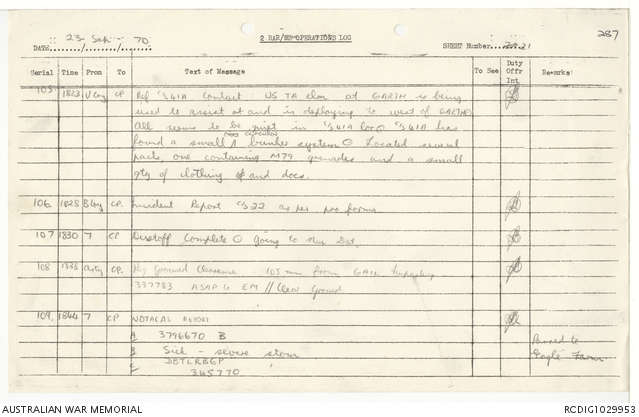 287
2 RAR/NZ OPERATIONS LOG
DATE 23 Sep 70
SHEET Number 21
Serial Time From To Text of Message To See Duty Offr Int Remarks
105 1823 V Coy CP Ref C/S 41A Contact: US TA elm at GARTH is being
used to assist at and is deploying to west of GARTH
All seems to be quiet in C/S 41A loc O C/S 41A has
found a small bunker system O Located several
packs, one containing M79 grenades and a small
qty of clothing and docs.
106 1825 B Coy CP. Incident Report C/S 22 as per pro forma
107 1830 7 CP Dustoff Complete O going to this
108 Arty CP. Ground Clearance 105 mm from GAIL
337783 ASAP G EM // Clear Ground
109 1844 7 CP NOTACAL
A 3796670 B
B Sick - severe
C
345770
Passed to
Eagle Farm
AUSTRALIAN WAR MEMORIAL
RCDIG1029953